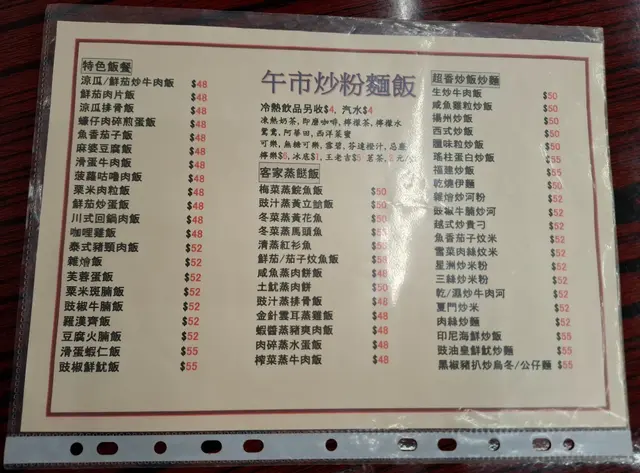 午市炒粉麵飯
特色飯餐
涼瓜/鮮茄炒牛肉飯 $48
鮮茄肉片飯 $48
涼瓜排骨飯 $48
蠔仔肉碎煎蛋飯 $48
魚香茄子飯 $48
麻婆豆腐飯 $48
滑蛋牛肉飯 $48
菠蘿咕嚕肉飯 $48
粟米肉粒飯 $48
鮮茄炒蛋飯 $48
川式回鍋肉飯 $48
咖哩雞飯 $48
泰式豬頸肉飯 $52
雜燴飯 $52
芙蓉蛋飯 $52
粟米斑腩飯 $52
豉椒牛腩飯 $52
羅漢齋飯 $52
豆腐火腩飯 $52
滑蛋蝦仁飯 $55
豉椒鮮魷飯 $55
冷熱飲品另收$4, 汽水$4
凍熱奶茶,即磨咖啡,檸檬茶,檸檬水
鴛鴦,阿華田,西洋菜蜜
可樂,無糖可樂,雪碧,芬達橙汁,忌廉
檸樂$6,冰底$1,王老吉$5 茗茶,
客家蒸餸飯
梅菜蒸鯇魚飯 $50
豉汁蒸黃立䱽飯 $50
冬菜蒸黃花魚 $50
冬菜蒸馬頭魚
清蒸紅衫魚 $50
鮮茄/茄子炆魚飯
咸魚蒸肉餅飯 $48
土魷蒸肉餅飯 $50
豉汁蒸排骨飯 $48
金針雲耳蒸雞飯 $48
蝦醬蒸豬爽肉飯 $48
肉碎蒸水蛋飯 $48
榨菜蒸牛肉飯 $48
超香炒飯炒麵
生炒牛肉飯 $50
咸魚雞粒炒飯 $50
揚州炒飯 $50
西式炒飯 $50
臘味粒炒飯 $50
瑤柱蛋白炒飯 $55
福建炒飯 $55
乾燒伊麵 $50
雜燴炒河粉 $52
豉椒牛腩炒河 $52
越式炒貴刁 $52
魚香茄子炆米 $52
雪菜肉絲炆米 $52
星洲炒米粉 $52
三絲炒米粉 $52
乾/濕炒牛肉河 $52
廈門炒米 $52
肉絲炒麵 $52
印尼海鮮炒飯 $55
豉油皇鮮魷炒麵 $55
黑椒豬扒炒烏冬/公仔麵 $55